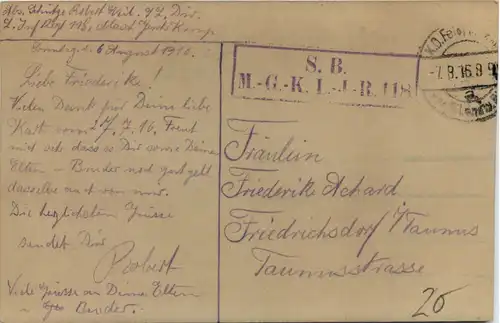 Abs. Schütze Robert Weil. 77. Div.
L. Inf. Regt 118, Masch. Gewehr Komp.
Sonntag, den 6 August 1916.
Liebe Friederike!
Vielen Dank für Deine liebe
Karte vom 27. 7. 16, Freut
mich sehr dass es Dir sowie Deine
Eltern - Bruder noch gut geht
dasselbe auch von mir.
Die herzlichsten Grüsse
sendet Dir
Robert
Viele Grüsse an Deine Eltern
Bruder.
S. B.
M.-G.-K. L-J-R. 118
K.D. Feld
-7.8.16.8-9
Fräulein
Friederike Achard
Friedrichsdorf i/Taunus
Taunusstrasse
20